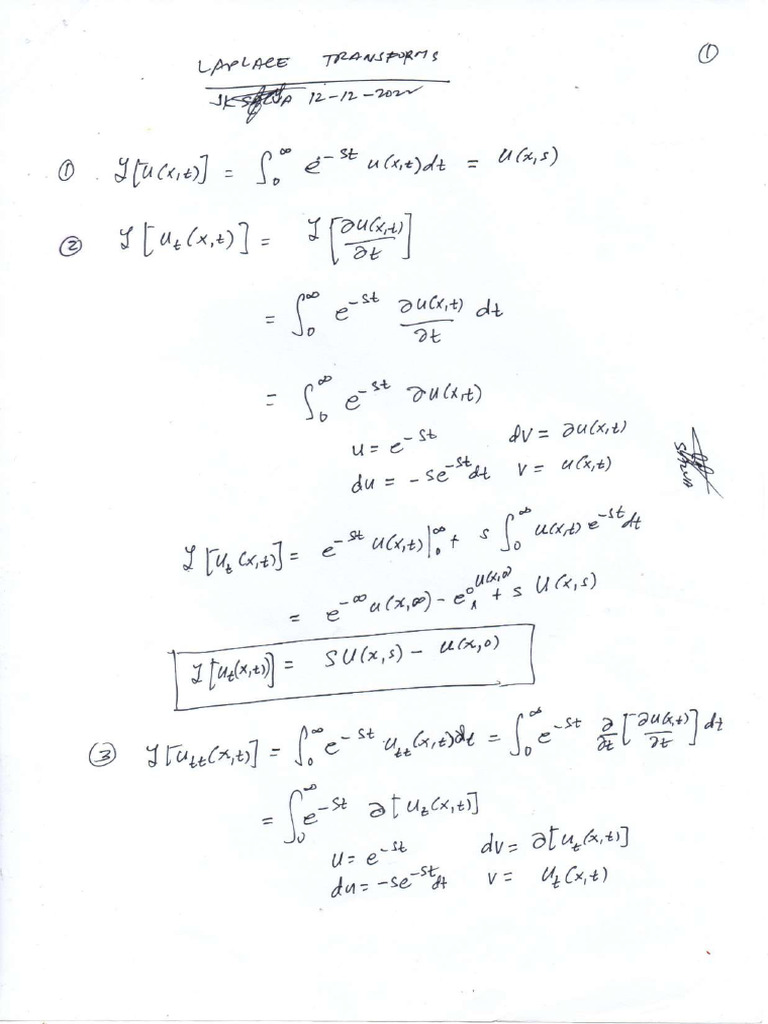 ①
LAPLACE TRANSFORMS
12-12-2022
① ℒ[u(x,t)] = ∫₀^∞ e^{-st} u(x,t)dt = U(x,s)
② ℒ[u_t(x,t)] = ℒ[∂u(x,t)/∂t]
= ∫₀^∞ e^{-st} ∂u(x,t)/∂t dt
= ∫₀^∞ e^{-st} ∂u(x,t)
u = e^{-st} dv = ∂u(x,t)
du = -se^{-st}dt v = u(x,t)
ℒ[u_t(x,t)] = e^{-st} u(x,t)|₀^∞ + s ∫₀^∞ u(x,t) e^{-st}dt
= e^{-∞} u(x,∞) - e^0 u(x,0) + s U(x,s)
ℒ[u_t(x,t)] = SU(x,s) - u(x,0)
③ ℒ[u_tt(x,t)] = ∫₀^∞ e^{-st} u_tt(x,t)dt = ∫₀^∞ e^{-st} ∂/∂t [∂u(x,t)/∂t] dt
= ∫₀^∞ e^{-st} ∂[u_t(x,t)]
u = e^{-st} dv = ∂[u_t(x,t)]
du = -se^{-st}dt v = u_t(x,t)